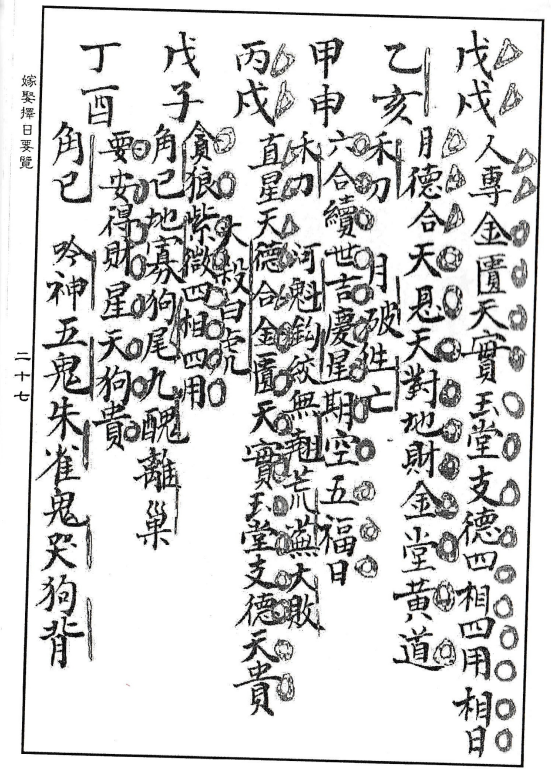 戊戌 人專金匱天寶玉堂支德四相四用相日
乙亥 月德合天恩天對地財金堂黃道
禾刀 月破往亡
甲申 六合續世吉慶星期空五福日
禾刀 河魁鈎絞無翹荒蕪大敗
丙戌 直星天德合金匱天寶玉堂支德天貴
大殺白虎
戊子 貪狼紫微四相四用
角巳地寡狗尾九醜離巢
丁酉 要安得財星天狗貴
角巳 吟神五鬼朱雀鬼哭狗背
嫁娶擇日要覽
二十七